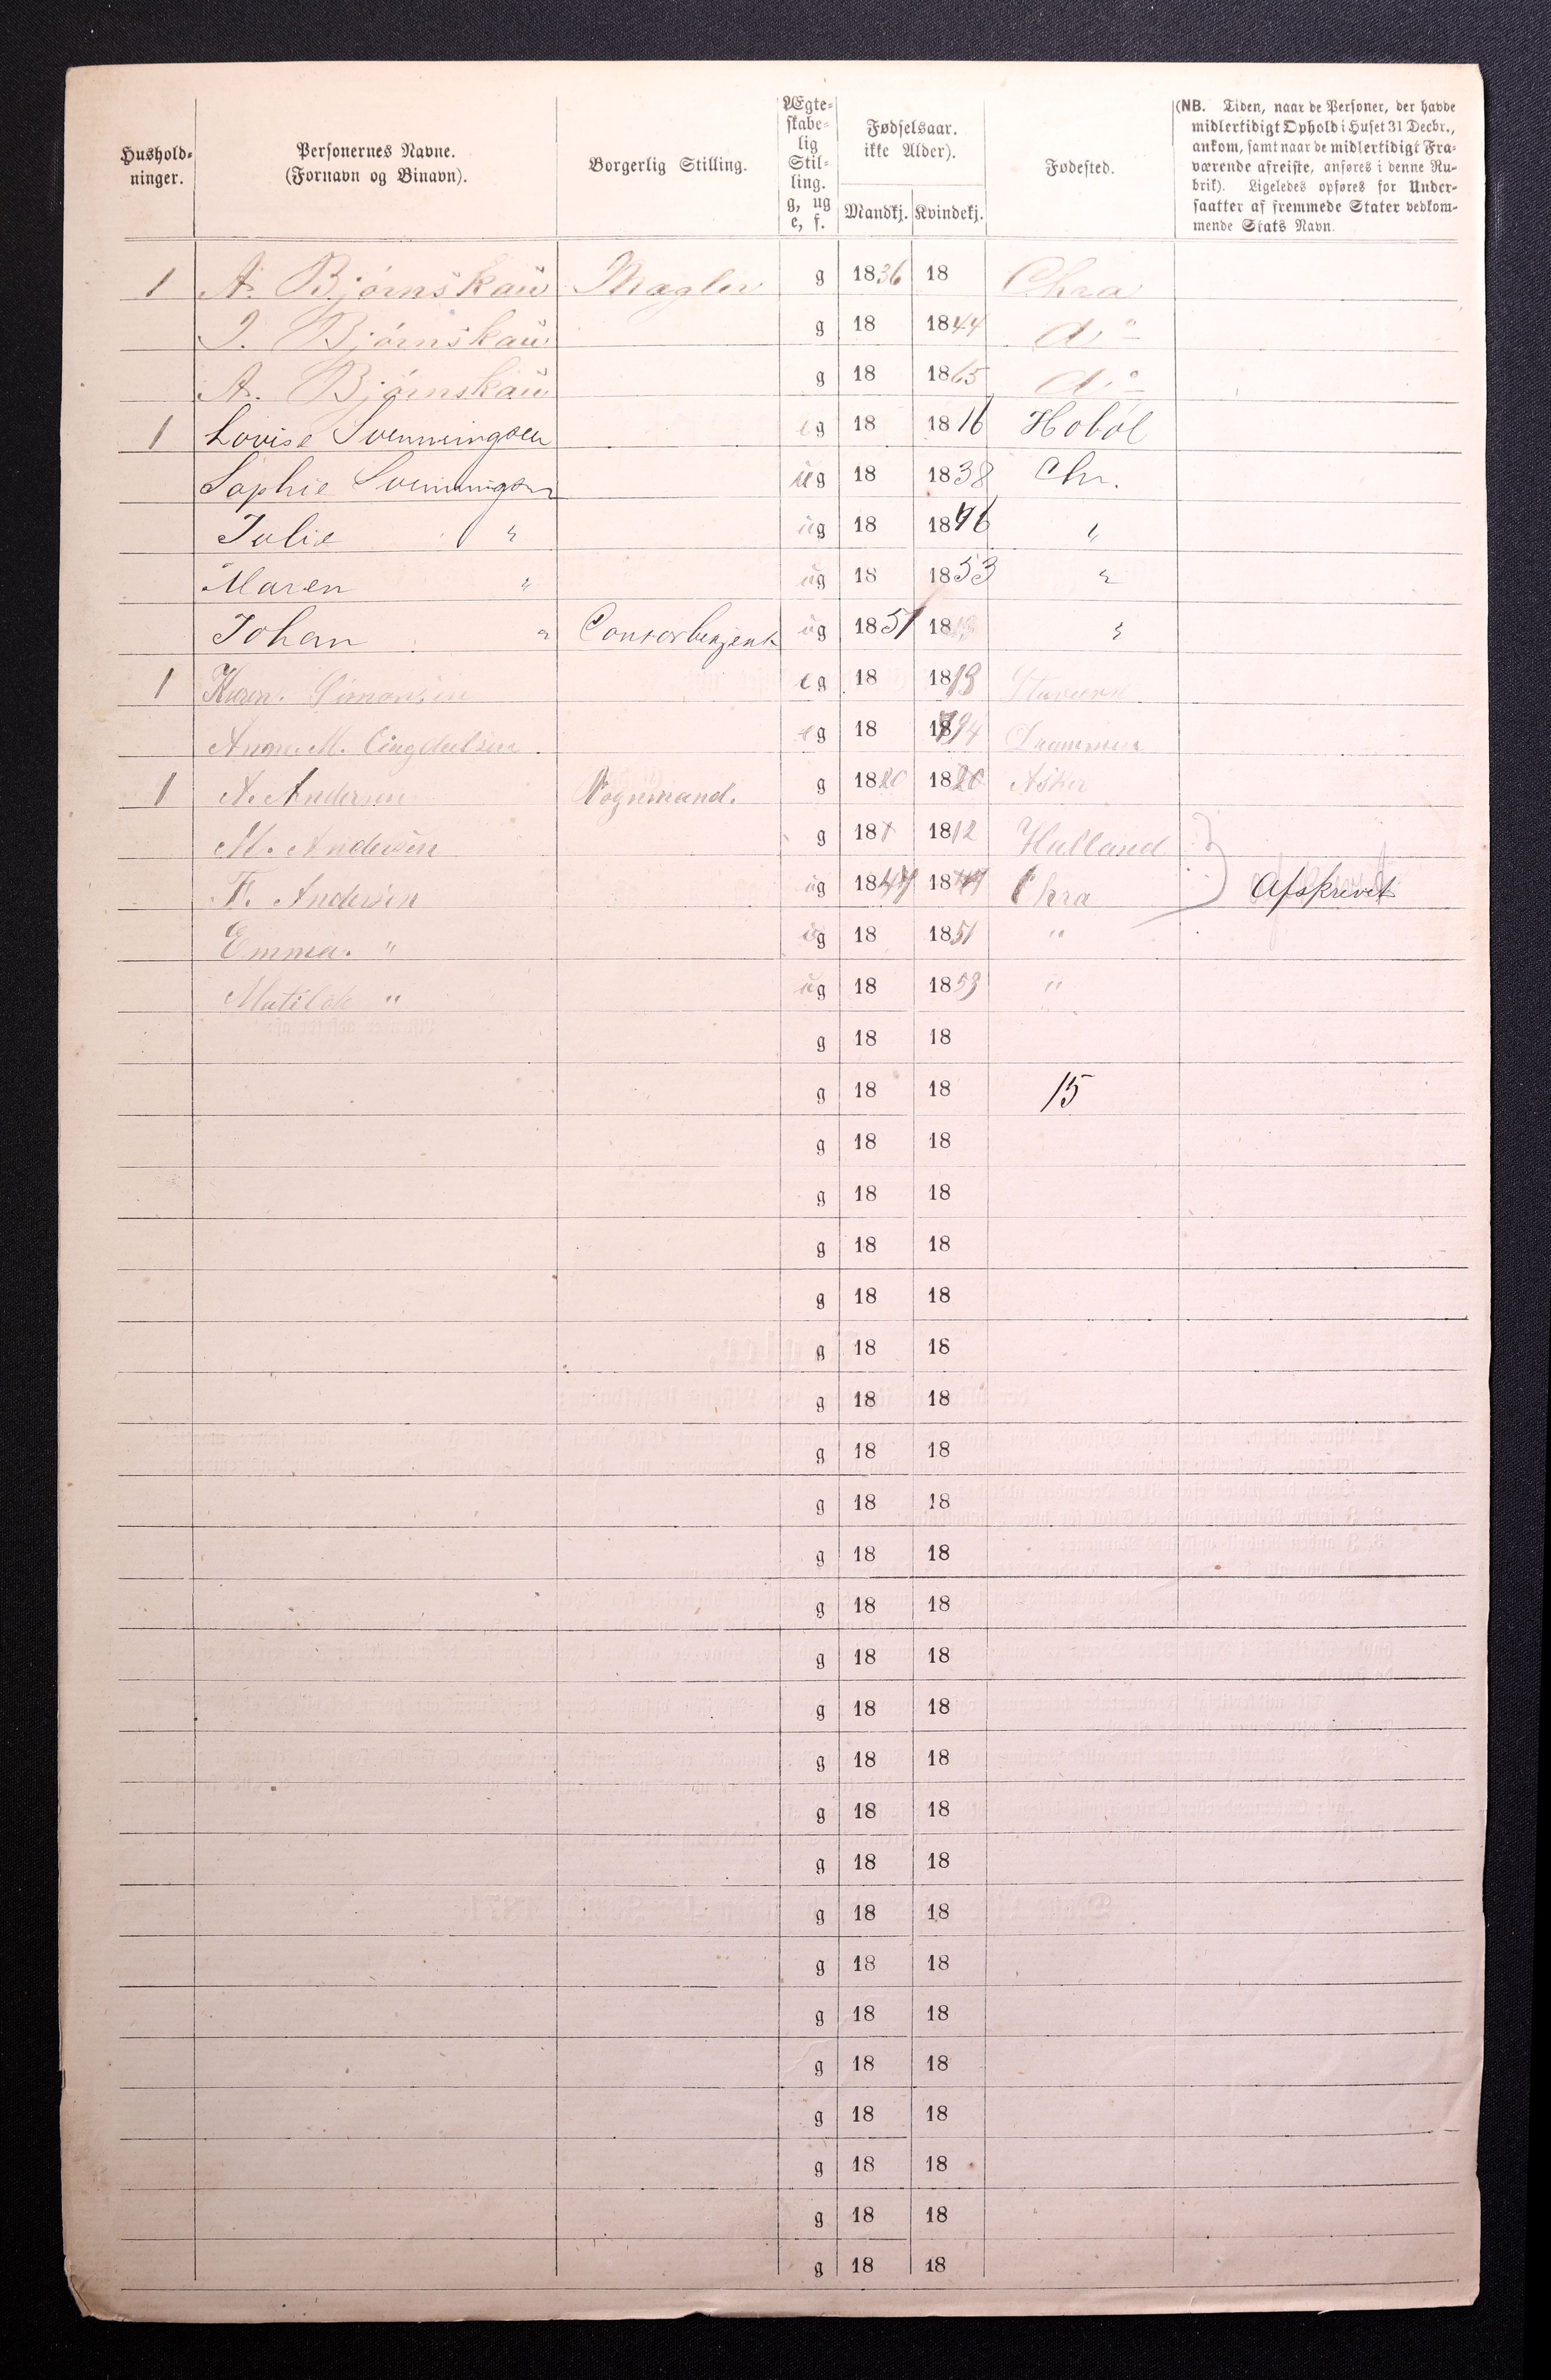 Hushold-
ninger.
Personernes Navne.
(Fornavn og Binavn).
Borgerlig Stilling.
Ægte-
skabe-
lig
Stil-
ling.
g, ug
e, f.
Fødselsaar.
ikke Alder).
Mandkj. Kvindekj.
Fødested.
(NB. Tiden, naar de Personer, der havde
midlertidigt Ophold i Huset 31 Decbr.,
ankom, samt naar de midlertidigt Fra-
værende afreiste, anføres i denne Ru-
brik). Ligeledes opføres for Under-
saatter af fremmede Stater vedkom-
mende Stats Navn.
1 A. Bjørnskau Mægler g 1836 18 Chra
J. Bjørnskau g 18 1844 do
A. Bjørnskau g 18 1865 do
1 Lovise Svenningsen eg 18 1816 Hobøl
Sophie Svenningsen ug 18 1838 Chr.
Julie " ug 18 1846 "
Maren " ug 18 1853 "
Johan " Contorbetjent ug 1851 18 "
1 Karen Simonsen eg 18 1813
Anne M. eg 18 Drammen
1 A. Andersen Vognmand. g 1820 18 Asker
M. Andersen g 18 1812 Hulland
F. Andersen ug 1847 18 Chra Afskrevet
Emma. " ug 18 1851 "
Matilde " ug 18 1853 "
g 18 18
g 18 18 15
g 18 18
g 18 18
g 18 18
g 18 18
g 18 18
g 18 18
g 18 18
g 18 18
g 18 18
g 18 18
g 18 18
g 18 18
g 18 18
g 18 18
g 18 18
g 18 18
g 18 18
g 18 18
g 18 18
g 18 18
g 18 18
g 18 18
g 18 18